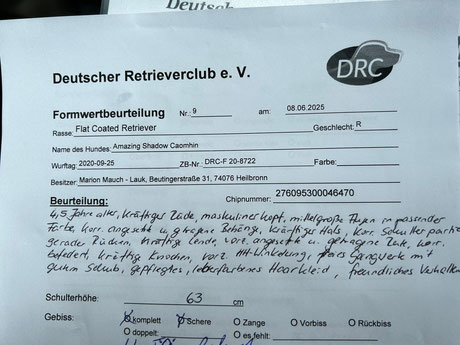 Deutsch
DRC
Deutscher Retrieverclub e. V.
Formwertbeurteilung Nr.: 9 am: 08.06.2025
Rasse: Flat Coated Retriever Geschlecht: R
Name des Hundes: Amazing Shadow Caomhin
Wurftag: 2020-09-25 ZB-Nr.: DRC-F 20-8722 Farbe:
Besitzer: Marion Mauch - Lauk, Beutingerstraße 31, 74076 Heilbronn
Chipnummer: 276095300046470
Beurteilung:
4,5 Jahre alter, kräftiger Rüde, maskuliner Kopf, mittelgroße Augen in passender
Farbe, korr. angesetzte u. getragene Behänge, kräftiger Hals, korr. Schulterpartie
gerader Rücken, kräftige Lende, vorz. angesetzte u. getragene Rute, korr.
befedert, kräftige Knochen, vorz. HH-Winkelung, Gangwerk mit
gutem Schub, gepflegtes, leberfarbenes Haarkleid, freundliches Verhalten
Schulterhöhe: 63 cm
Gebiss: komplett Schere O Zange O Vorbiss O Rückbiss
O doppelt: O es fehlt: